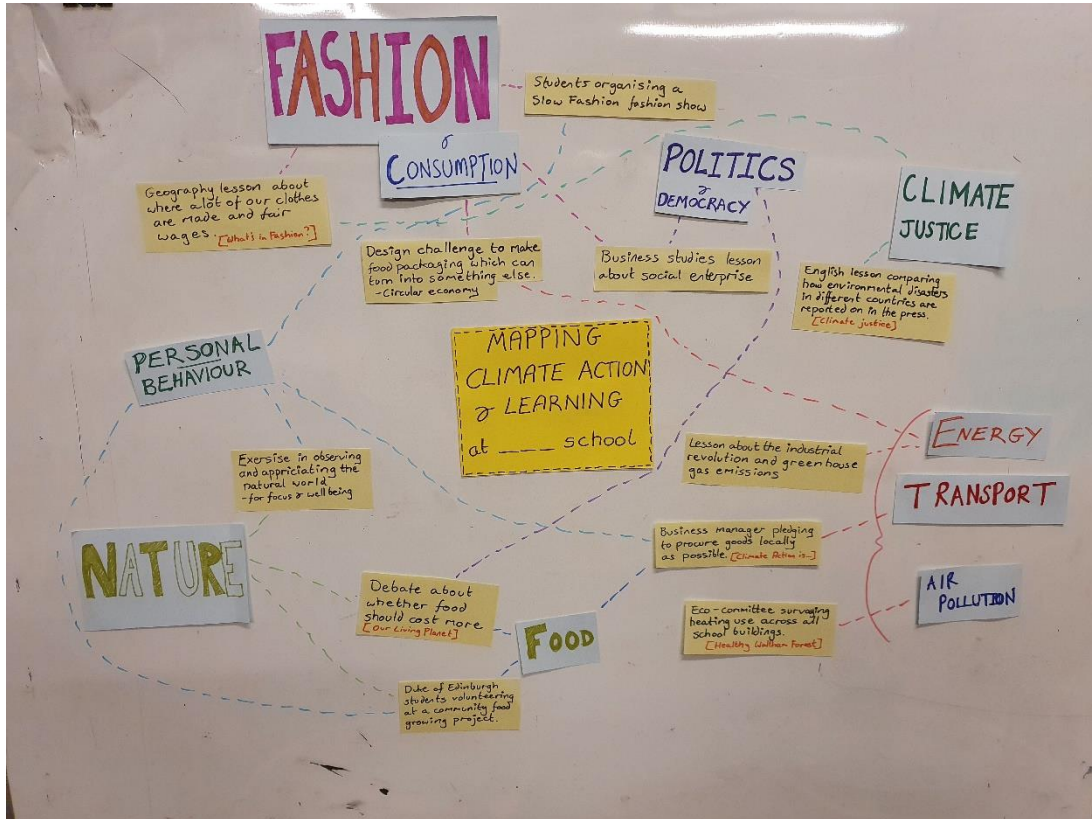 FASHION
&
CONSUMPTION
Students organising a
Slow Fashion fashion show
POLITICS
&
DEMOCRACY
CLIMATE
JUSTICE
Geography lesson about
where a lot of our clothes
are made and fair
wages. [What's in Fashion?]
Design challenge to make
food packaging which can
turn into something else.
-Circular economy
Business studies lesson
about social enterprise
English lesson comparing
how environmental disasters
in different countries are
reported on in the press.
[Climate justice]
PERSONAL
BEHAVIOUR
MAPPING
CLIMATE ACTION
& LEARNING
at ____ school
Exersise in observing
and appriciating the
natural world
-for focus & wellbeing
Lesson about the industrial
revolution and greenhouse
gas emissions
ENERGY
TRANSPORT
NATURE
Business manager pledging
to procure goods locally
as possible. [Climate Action is...]
Debate about
whether food
should cost more
[Our Living Planet]
FOOD
Eco-committee survaying
heating use across all
school buildings.
[Healthy Waltham Forest]
AIR
POLLUTION
Duke of Edinburgh
students volunteering
at a community food
growing project.